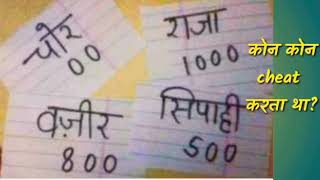 चोर
00
राजा
1000
वज़ीर
800
सिपाही
500
कोन कोन
cheat
करता था?